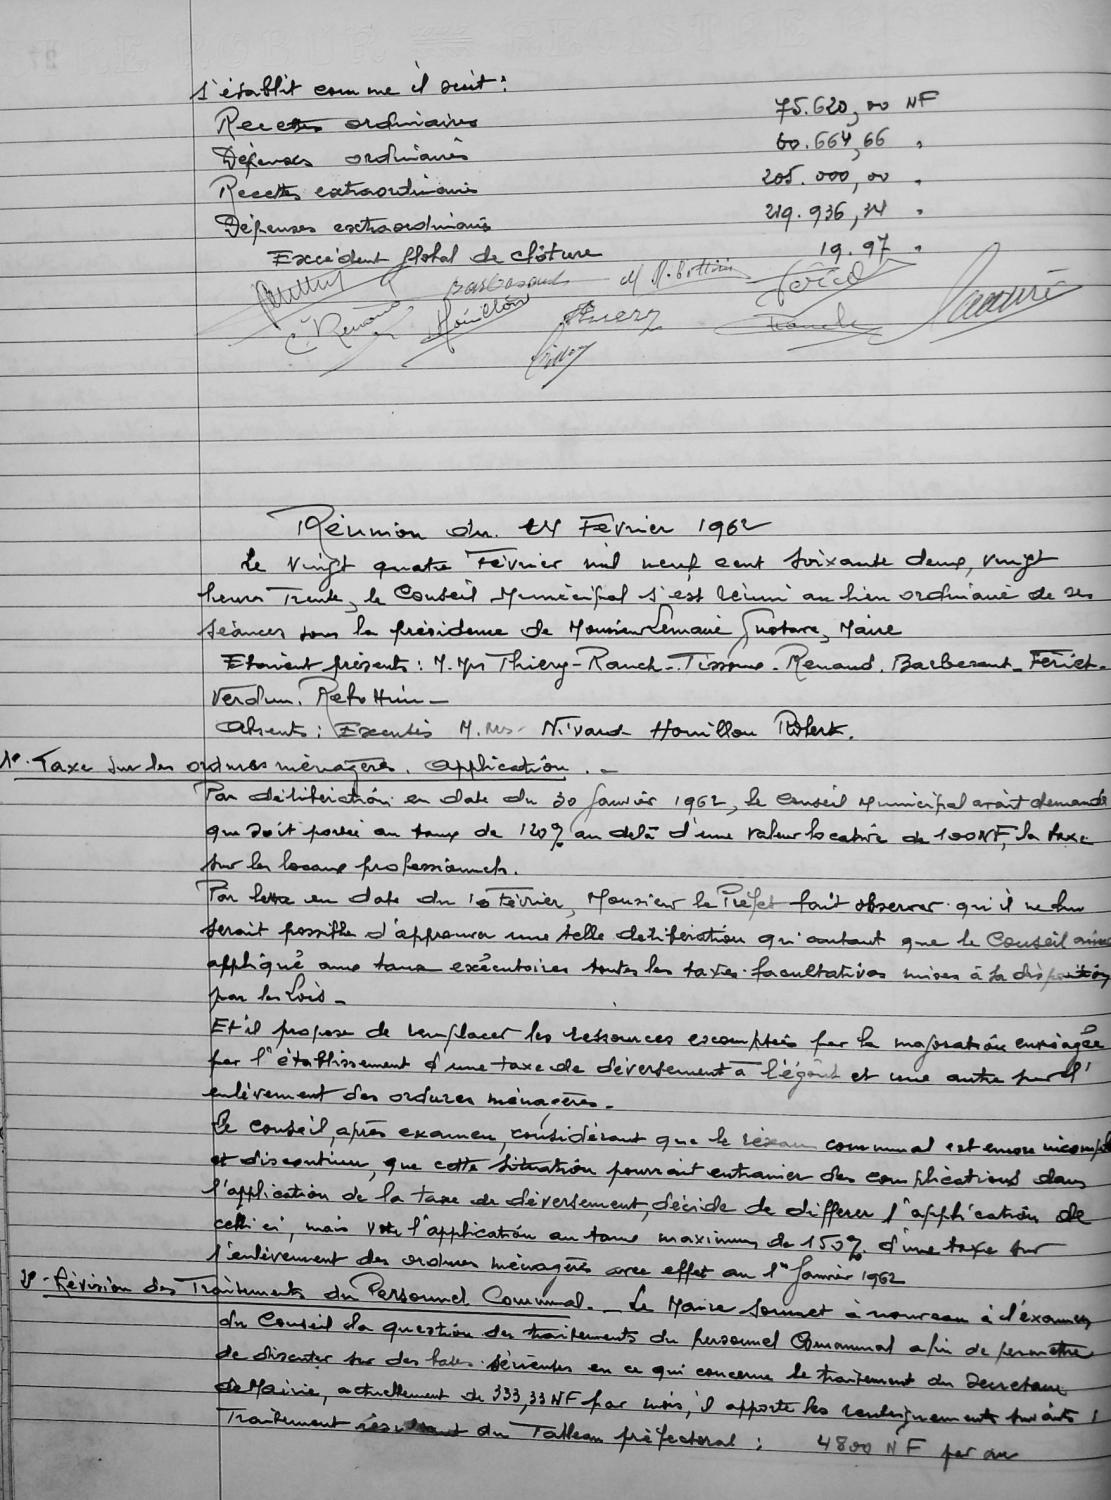 s'établit comme il suit :
Recettes ordinaires 75.620,00 NF
Dépenses ordinaires 60.664,66 "
Recettes extraordinaires 205.000,00 "
Dépenses extraordinaires 219.936,34 "
Excédent global de clôture 19.97 "
Barbesant
C. Renaud Houillon Thiery Ranch Lemaire
Réunion du 24 Février 1962
Le Vingt quatre Février mil neuf cent soixante deux, vingt
heures Trente, le Conseil Municipal s'est réuni au lieu ordinaire de ses
séances sous la présidence de Monsieur Lemaire Gustave, Maire
Etaient présents : M.Ms Thiery - Ranch - Tissoux - Renaud. Barbesant - Fériet -
Verdun.
Absents : Excusés M.Ms. Houillon Robert.
1° - Taxe sur les ordures ménagères. Application. -
Par délibération en date du 30 Janvier 1962, le Conseil Municipal avait demandé
que soit portée au taux de 120% au delà d'une valeur locative de 100NF, la taxe
sur les locaux professionnels.
Par lettre en date du 10 Février, Monsieur le Préfet fait observer qu'il ne lui
serait possible d'approuver une telle délibération qu'autant que le Conseil
appliqué aux taux exécutoires toutes les taxes facultatives mises à sa disposition
par les Lois -
Et il propose de remplacer les ressources escomptées par la majoration envisagée
par l'établissement d'une taxe de déversement à l'égoût et une autre sur l'
enlèvement des ordures ménagères -
Le Conseil, après examen, considérant que le réseau communal est encore incomplet
et discontinu, que cette situation pourrait entrainer des complications dans
l'application de la taxe de déversement, décide de différer l'application de
celle ci, mais vote l'application au taux maximum de 150% d'une taxe sur
l'enlèvement des ordures ménagères avec effet au 1er Janvier 1962
2° - Révision des Traitements du Personnel Communal. - Le Maire soumet à nouveau à l'examen
du Conseil la question des traitements du personnel Communal afin de permettre
de discuter sur des bases sérieuses en ce qui concerne le traitement du Secrétaire
de Mairie, actuellement de 333,33 NF par mois, il apporte les renseignements suivants :
Traitement résultant du Tableau préfectoral : 4800 NF par an